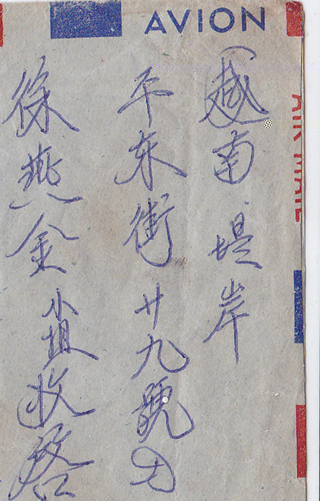 AVION
越南堤岸
平东街廿九號
徐燕金小姐收啓
AIR MAIL